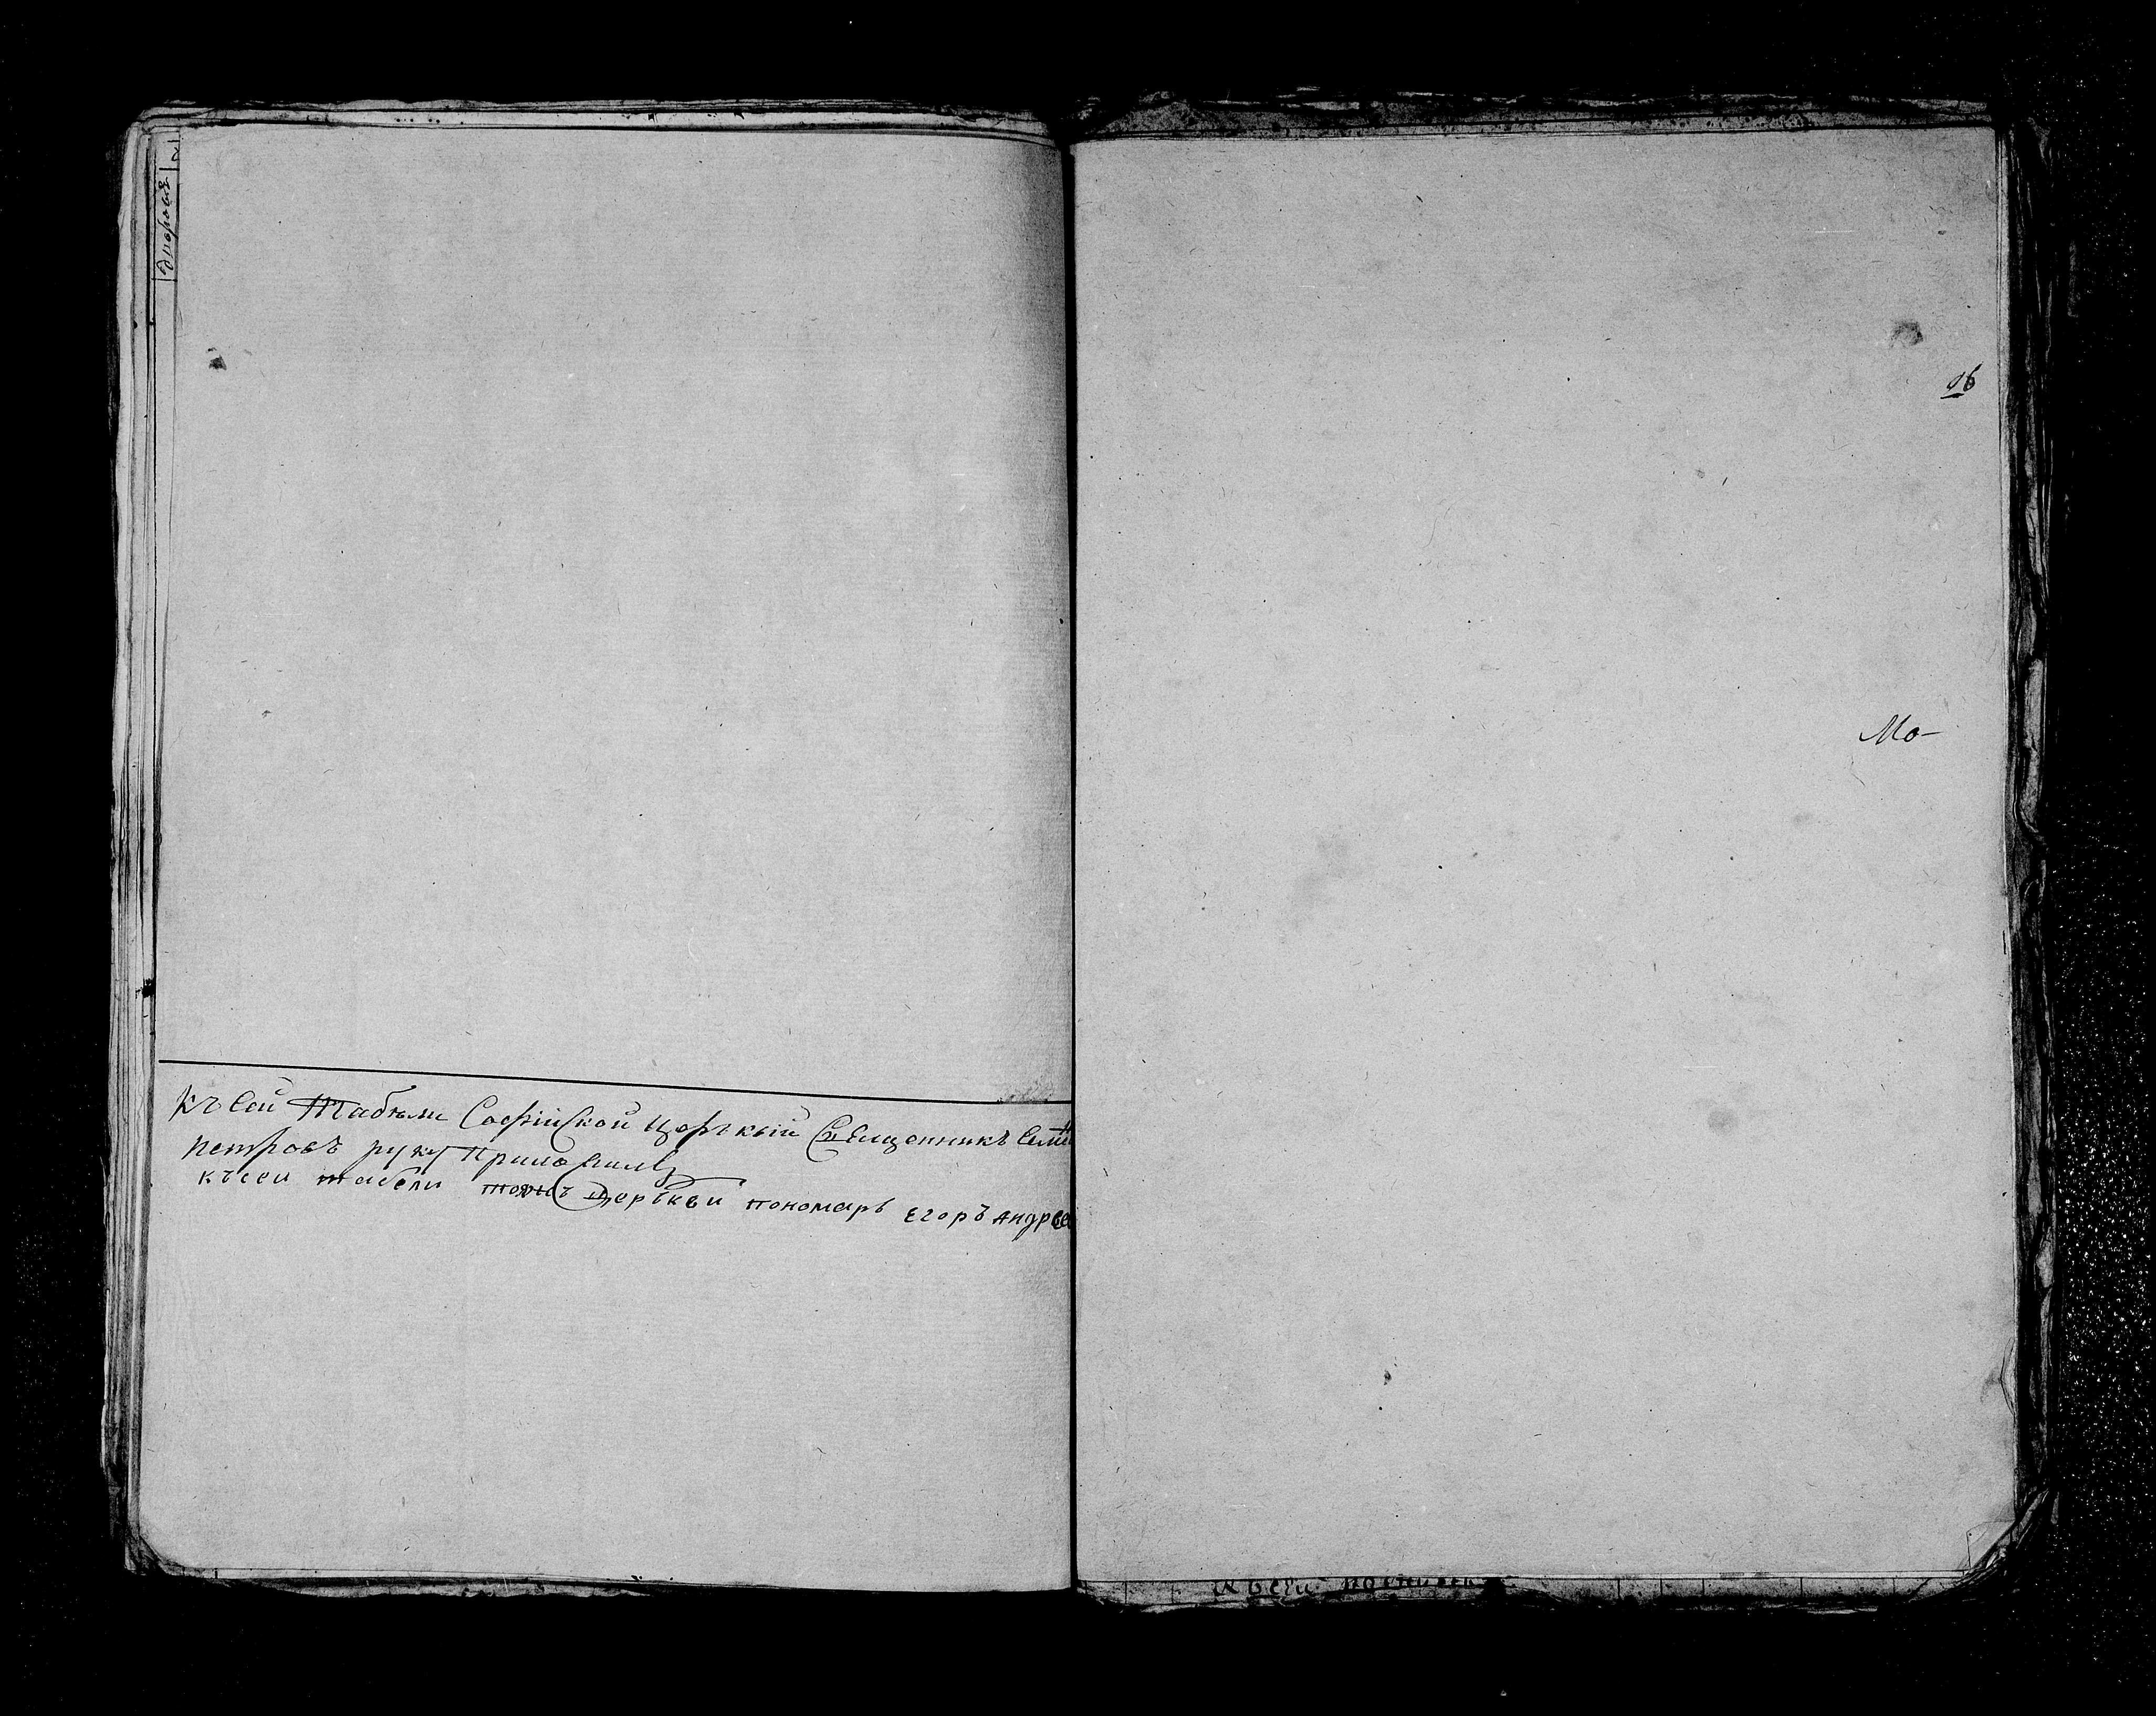 Къ сей табѣли Софійской церькви Священникъ
петровъ руку приложилъ
къ сеи табели тояжъ церькви пономарь Егоръ Андрее
Мо-